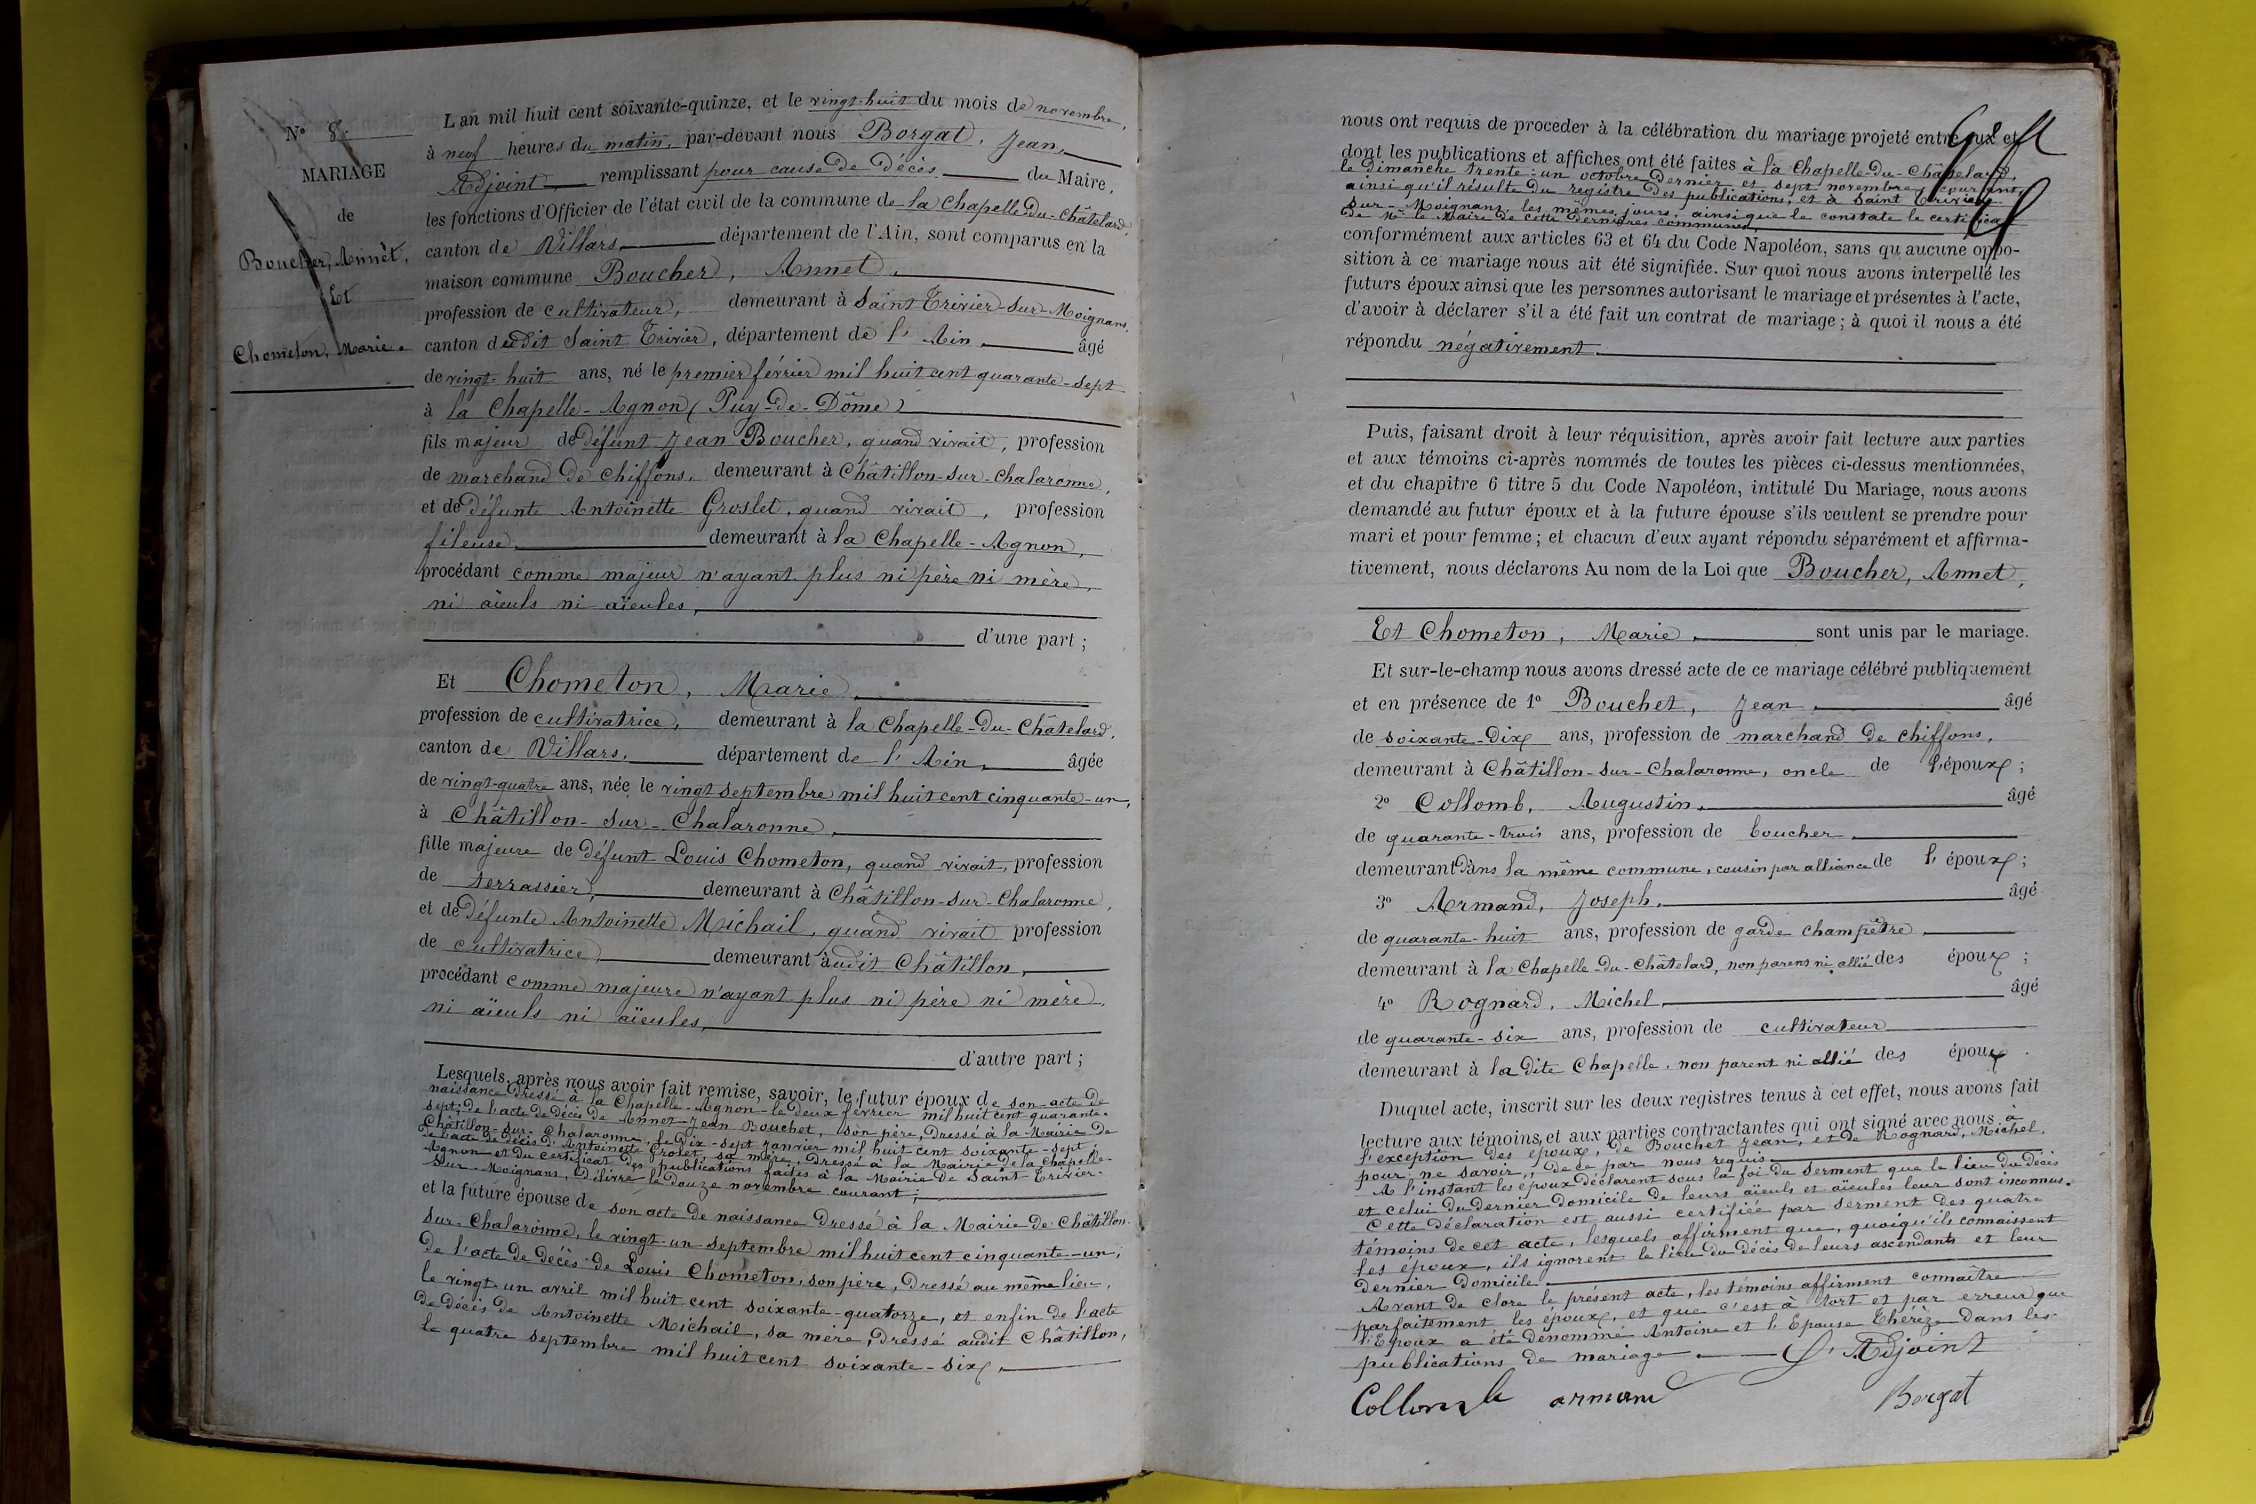 N° 8.
MARIAGE
de
Boucher, Annet,
Et
Chometon, Marie.
L an mil huit cent soixante-quinze, et le vingt-huit du mois de novembre,
à neuf heures du matin, par-devant nous Borgat, Jean,
Adjoint, remplissant pour cause de décès du Maire,
les fonctions d'Officier de l'état civil de la commune de la Chapelle-du-Châtelard,
canton de Villars, département de l'Ain, sont comparus en la
maison commune Boucher, Annet,
profession de cultivateur, demeurant à Saint Trivier-sur-Moignans,
canton dudit Saint Trivier, département de l'Ain, âgé
de vingt-huit ans, né le premier février mil huit cent quarante-sept
à la Chapelle-Agnon (Puy-de-Dôme)
fils majeur de défunt Jean Boucher, quand vivait, profession
de marchand de chiffons, demeurant à Châtillon-sur-Chalaronne,
et de défunte Antoinette Groslet, quand vivait, profession
fileuse, demeurant à la Chapelle-Agnon,
procédant comme majeur n'ayant plus ni père ni mère,
ni aïeuls ni aïeules,
d'une part ;
Et Chometon, Marie,
profession de cultivatrice, demeurant à la Chapelle-du-Châtelard,
canton de Villars, département de l'Ain, âgée
de vingt-quatre ans, née le vingt septembre mil huit cent cinquante-un,
à Châtillon-sur-Chalaronne,
fille majeure de défunt Louis Chometon, quand vivait, profession
de terrassier, demeurant à Châtillon-sur-Chalaronne,
et de défunte Antoinette Michail, quand vivait profession
de cultivatrice demeurant audit Châtillon,
procédant comme majeure n'ayant plus ni père ni mère,
ni aïeuls ni aïeules,
d'autre part ;
Lesquels, après nous avoir fait remise, savoir, le futur époux de son acte de
naissance dressé à la Chapelle-Agnon le deux février mil huit cent quarante-
sept; de l'acte de décès de Annet-Jean Bouchet, son père, dressé à la Mairie de
Châtillon-sur-Chalaronne, le dix-sept janvier mil huit cent soixante-sept;
de l'acte de décès d'Antoinette Grolet, sa mère, dressé à la Mairie de la Chapelle-
Agnon et du certificat des publications faites à la Mairie de Saint-Trivier-
sur-Moignans, délivré le douze novembre courant;
et la future épouse de son acte de naissance dressé à la Mairie de Châtillon-
sur-Chalaronne, le vingt-un septembre mil huit cent cinquante-un;
de l'acte de décès de Louis Chometon, son père, dressé au même lieu,
le vingt-un avril mil huit cent soixante-quatorze, et enfin de l'acte
de décès de Antoinette Michail, sa mère, dressé audit Châtillon,
le quatre septembre mil huit cent soixante-six,
nous ont requis de proceder à la célébration du mariage projeté entre eux et
dont les publications et affiches ont été faites à la Chapelle-du-Châtelard,
le dimanche trente-un octobre dernier et sept novembre courant,
ainsi qu'il résulte du registre des publications, et à Saint Trivier-
sur-Moignans, les mêmes jours, ainsi que le constate le certificat
de Mr le Maire de cette dernière commune,
conformément aux articles 63 et 64 du Code Napoléon, sans qu aucune oppo-
sition à ce mariage nous ait été signifiée. Sur quoi nous avons interpellé les
futurs époux ainsi que les personnes autorisant le mariage et présentes à l'acte,
d'avoir à déclarer s'il a été fait un contrat de mariage ; à quoi il nous a été
répondu négativement.
Puis, faisant droit à leur réquisition, après avoir fait lecture aux parties
et aux témoins ci-après nommés de toutes les pièces ci-dessus mentionnées,
et du chapitre 6 titre 5 du Code Napoléon, intitulé Du Mariage, nous avons
demandé au futur époux et à la future épouse s'ils veulent se prendre pour
mari et pour femme ; et chacun d'eux ayant répondu séparément et affirma-
tivement, nous déclarons Au nom de la Loi que Boucher, Annet,
Et Chometon, Marie, sont unis par le mariage.
Et sur-le-champ nous avons dressé acte de ce mariage célébré publiquement
et en présence de 1° Bouchet, Jean, âgé
de soixante-dix ans, profession de marchand de chiffons,
demeurant à Châtillon-sur-Chalaronne, oncle de l'époux ;
2° Collomb, Augustin, âgé
de quarante-trois ans, profession de boucher
demeurant dans la même commune, cousin par alliance de l'époux ;
3° Armand, Joseph, âgé
de quarante-huit ans, profession de garde champêtre
demeurant à la Chapelle-du-Châtelard, non parens ni allié des époux ;
4° Rognard, Michel âgé
de quarante-six ans, profession de cultivateur
demeurant à la dite Chapelle, non parent ni allié des époux.
Duquel acte, inscrit sur les deux registres tenus à cet effet, nous avons fait
lecture aux témoins et aux parties contractantes qui ont signé avec nous à
l'exception des époux, de Bouchet Jean, et de Rognard, Michel,
pour ne savoir, de ce par nous requis
A l'instant les époux déclarent sous la foi du serment que le lieu du décès
et celui du dernier domicile de leurs aïeuls et aïeules leur sont inconnus.
Cette déclaration est aussi certifiée par serment des quatre
témoins de cet acte, lesquels affirment que, quoiqu'ils connaissent
les époux, ils ignorent le lieu du décès de leurs ascendants et leur
dernier domicile.
Avant de clore le présent acte, les témoins affirment connaître
parfaitement les époux, et que c'est à tort et par erreur que
l'Epoux a été dénommé Antoine et l'Epouse Thérèze dans les
publications de mariage. L'Adjoint
Collomb armand Borgat